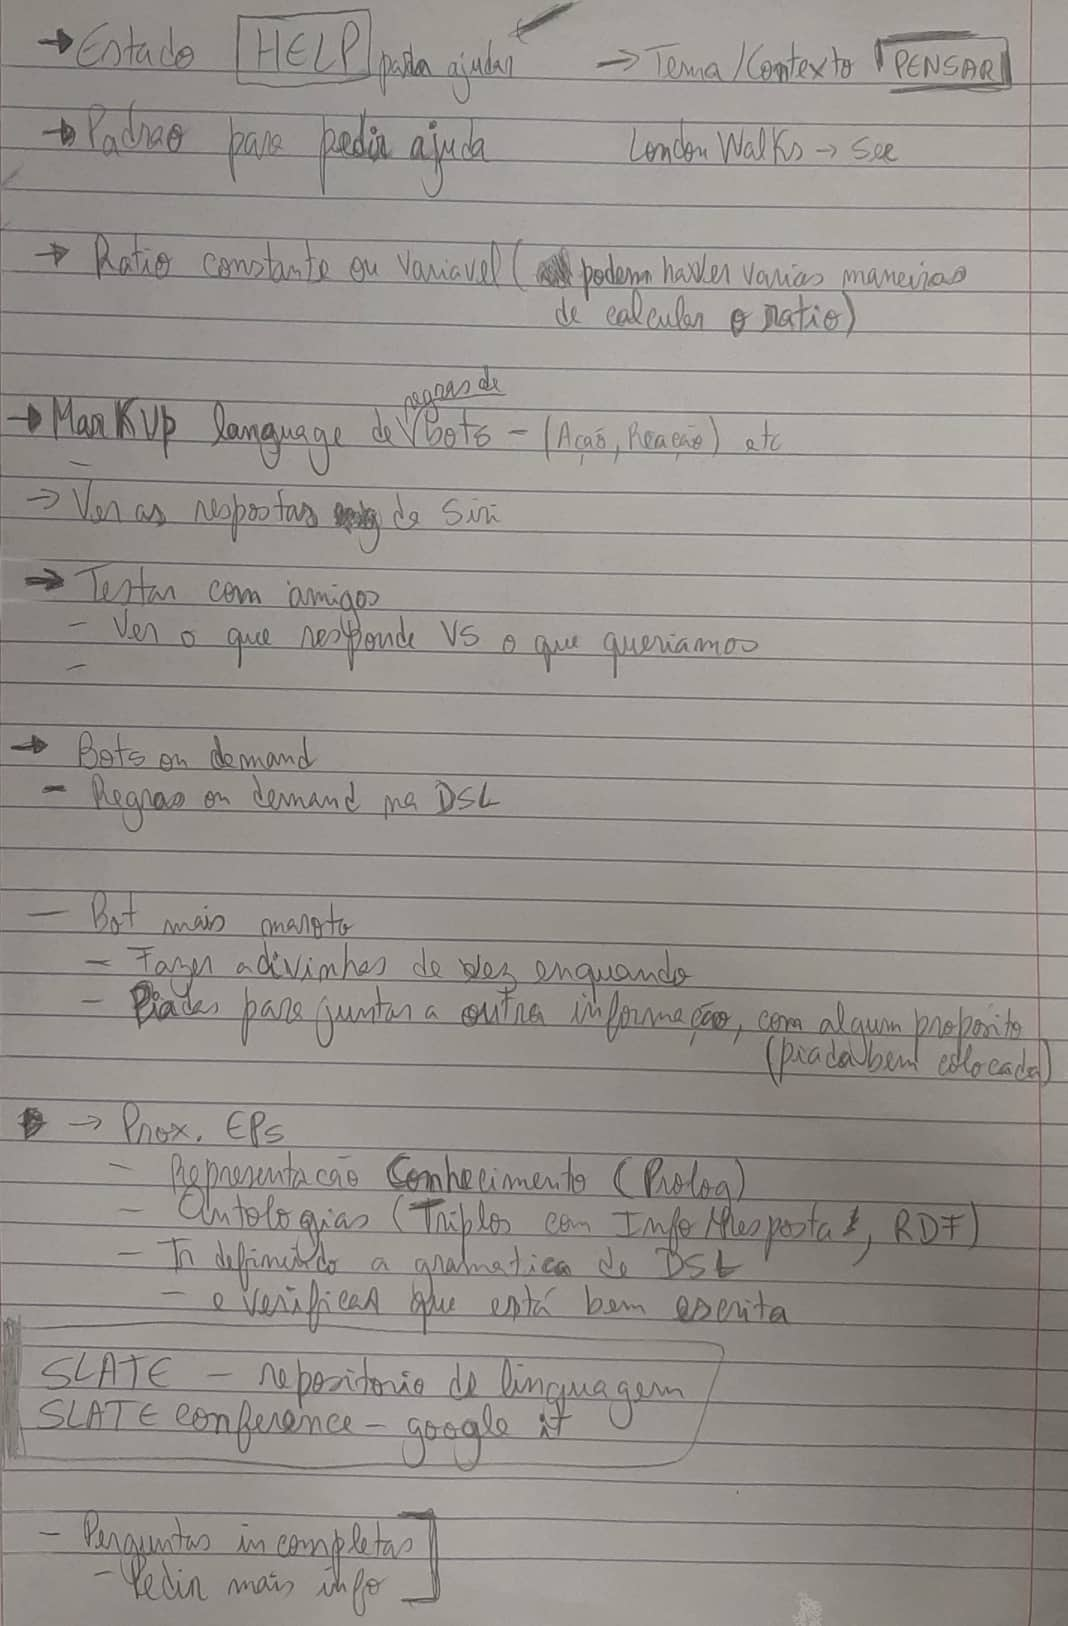 → Estado HELP para ajudar → Tema/Contexto PENSAR
→ Padrao para pedir ajuda London Walks → See
→ Ratio constante ou variavel ( podem haver varias maneiras
de calcular o ratio)
regras de
→ MarkUp language de bots - (Ação, Reação) etc
-
→ Ver as respostas da Siri
→ Testar com amigos
- Ver o que responde VS o que queriamos
-
→ Bots on demand
- Regras on demand na DSL
- Bot mais maroto
- Fazer adivinhas de vez enquando
- Piadas para juntar a outra informação, com algum proposito
(piada bem colocada)
→ Prox. EPs
- Representacão Conhecimento (Prolog)
- Ontologias (Triplos com Info Resposta, RDF)
- Ir definindo a gramatica de DSL
- e verificar que está bem escrita
SLATE - repositorio de linguagem
SLATE conference - google it
- Perguntas incompletas
- Pedir mais info